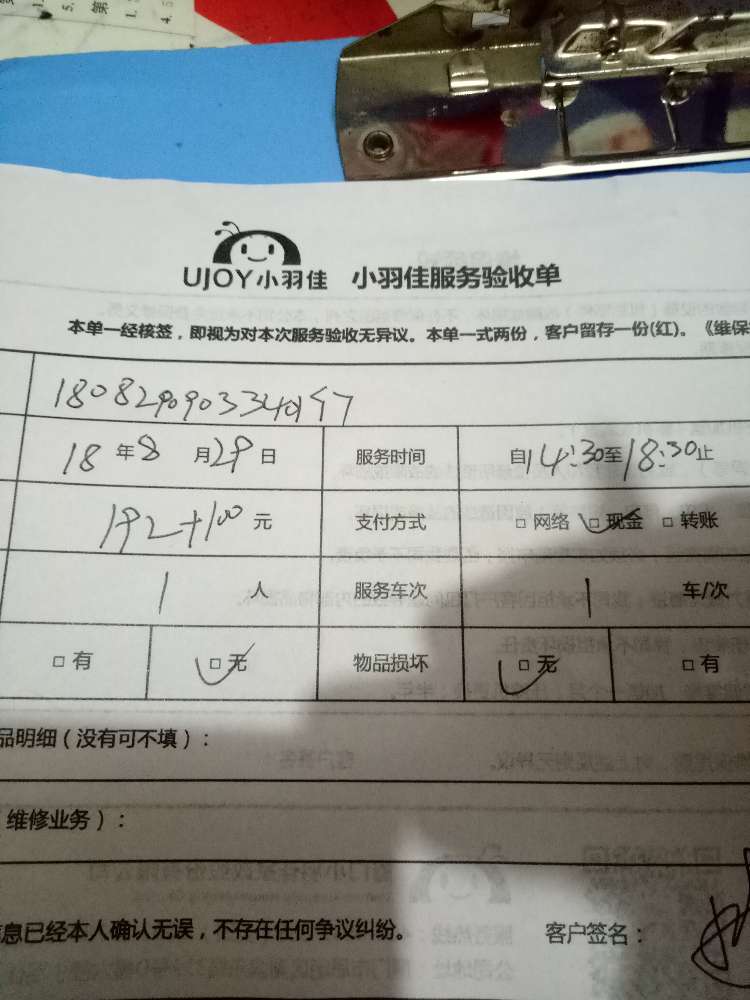 UJOY小羽佳 小羽佳服务验收单
本单一经核签，即视为对本次服务验收无异议。本单一式两份，客户留存一份(红)。《维保
18年8月29日 服务时间 自14:30至18:30止
192+100元 支付方式 □网络 □现金 □转账
1人 服务车次 1车/次
□有 □无 物品损坏 □无 □有
品明细（没有可不填）：
维修业务）：
信息已经本人确认无误，不存在任何争议纠纷。 客户签名：